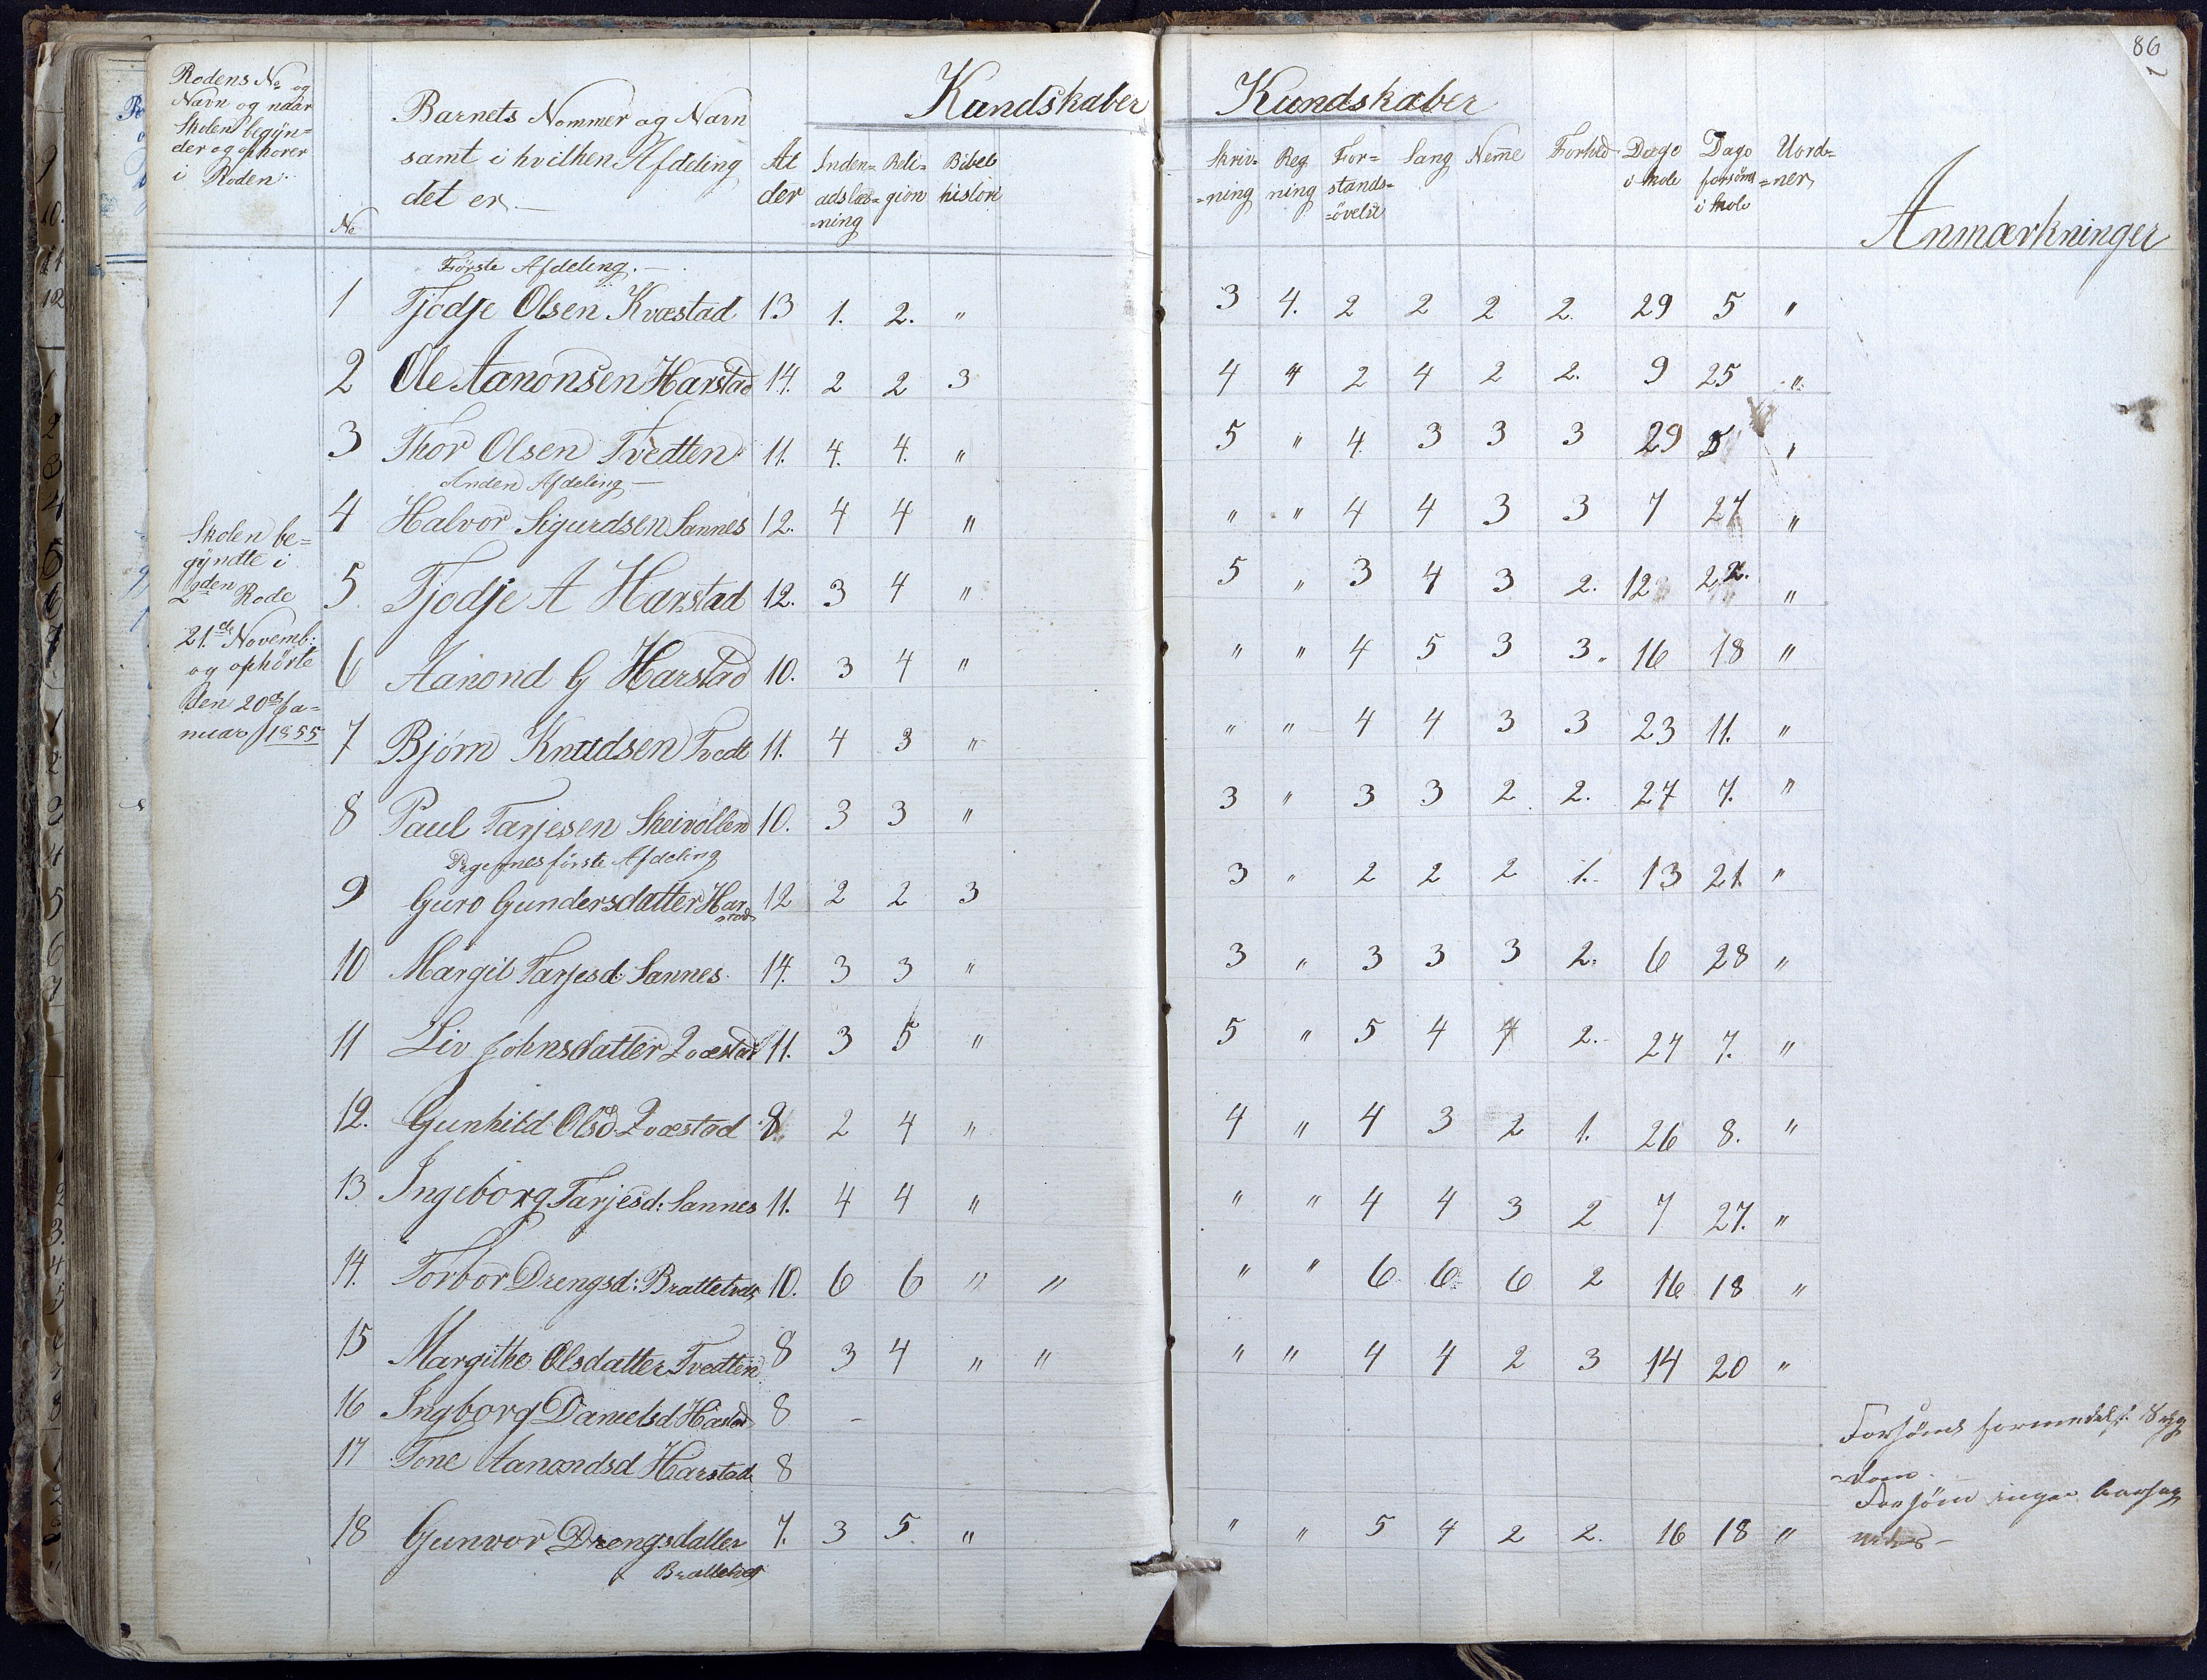 86
Rodens No og
Navn og naar
Skolen begÿn=
der og ophorer
i Roden
No
Barnets Nommer og Navn
samt i hvilken Afdeling
det er
Al
der
Kundskaber
Inden=
adslæs=
=ning
Reli=
gion
Bibel
histori
Kundskaber
Skriv=
=ning
Reg
ning
For=
stands=
=övelse
Sang
Neme
Forhld
Dage
i skole
Dage
forsömt
i skole
Uord=
=ner
Anmærkninger
Förste Afdeling.
1 Tjodje Olsen Kvæstad 13 1. 2. " 3 4. 2 2 2 2. 29 5 "
2 Ole Aanonsen Harstad 14. 2 2 3 4 4 2 4 2 2. 9 25 "
3 Thor Olsen Tvedten 11. 4. 4. " 5 " 4. 3 3 3 29 5 "
Anden Afdeling
4 Halvor Sigurdsen Sannes 12. 4 4 " " " 4 4 3 3 7 27 "
5 Tjodje A Harstad 12. 3 4 " 5 " 3 4 3 2. 12 22. "
6 Aanond G Harstad 10. 3 4 " " " 4 5 3 3. 16 18 "
7 Bjørn Knudsen Tvedt 11. 4 3 " " " 4 4 3 3 23 11. "
8 Paul Tarjesen Skeivollen 10. 3 3 " 3 " 3 3 2 2. 27 7. "
Pigernes förste Afdeling
9 Guro Gundersdatter Har
=stad 12 2 2 3 3 " 2 2 2 1. 13 21. "
10 Margit Tarjesd: Sannes 14. 3 3 " 3 " 3 3 3 2. 6 28 "
11 Liv Johnsdatter Qvæstad 11. 3 5 " 5 " 5 4 4 2. 27 7. "
12. Gunhild Olsd Qvæstad 8. 2 4 " 4 " 4 3 2 1. 26 8. "
13 Ingeborg Tarjesd: Sannes 11. 4 4 " " " 4 4 3 2 7 27. "
14. Torbor Drengsd: Brattetvedt 10. 6 6 " " " " 6 6 6 2 16 18 "
15 Margithe Olsdatter Tvedten 8 3 4 " " " " 4 4 2 3 14 20 "
16 Ingborg Danielsd Hastad 8 - Forsömt formedelst Syg
=dom.
17 Tone Aanondsd Harstad 8 Forsömt ingen Aarsag
18 Gunvor Drengsdatter 7. 3 5. " " " 5 4 2 2. 16 18 "
Brattetvedt
Skolen be=
gÿndte i
2den Rode
21.de Novemb:
og ophörte
den 20de Ja=
nuar 1855